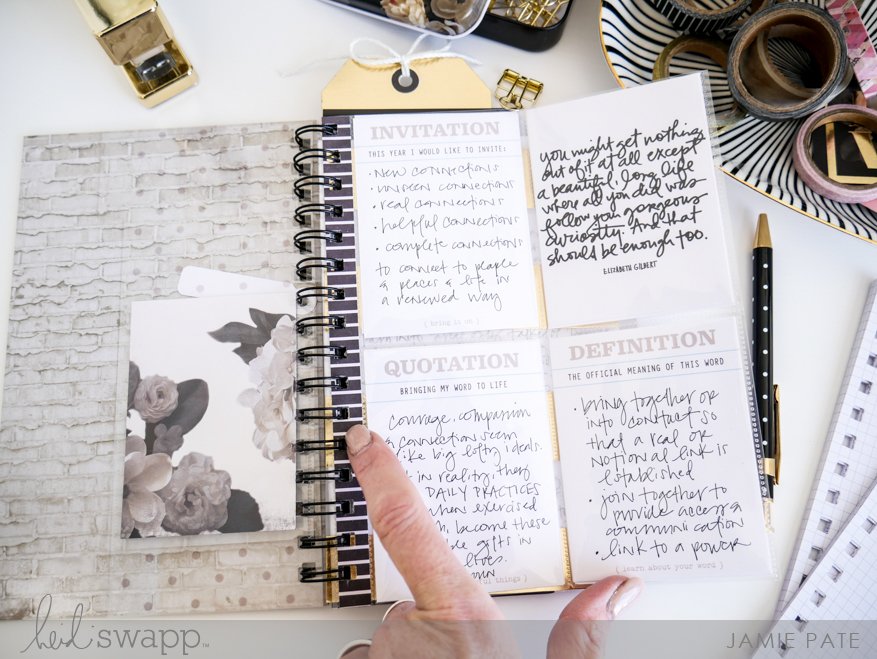 INVITATION
THIS YEAR I WOULD LIKE TO INVITE:
• NEW CONNECTIONS
• UNSEEN CONNECTIONS
• real connections
• helpful connections
• complete connections
to connect to people
& places & life in
a renewed way
{ bring it on }
you might get nothing
out of it at all except
a beautiful, long life
where all you did was
follow your gorgeous
curiosity. And that
should be enough too.
ELIZABETH GILBERT
QUOTATION
BRINGING MY WORD TO LIFE
courage, companion
& connection seem
like big lofty ideals.
in reality, they
DAILY PRACTICES
when exercised
become these
gifts in
lives.
ful things }
DEFINITION
THE OFFICIAL MEANING OF THIS WORD
• bring together or
into contact so
that a real or
notional link is
established
• join together to
provide access &
communication
• link to a power
{ learn about your word }
heidi swapp™
JAMIE PATE